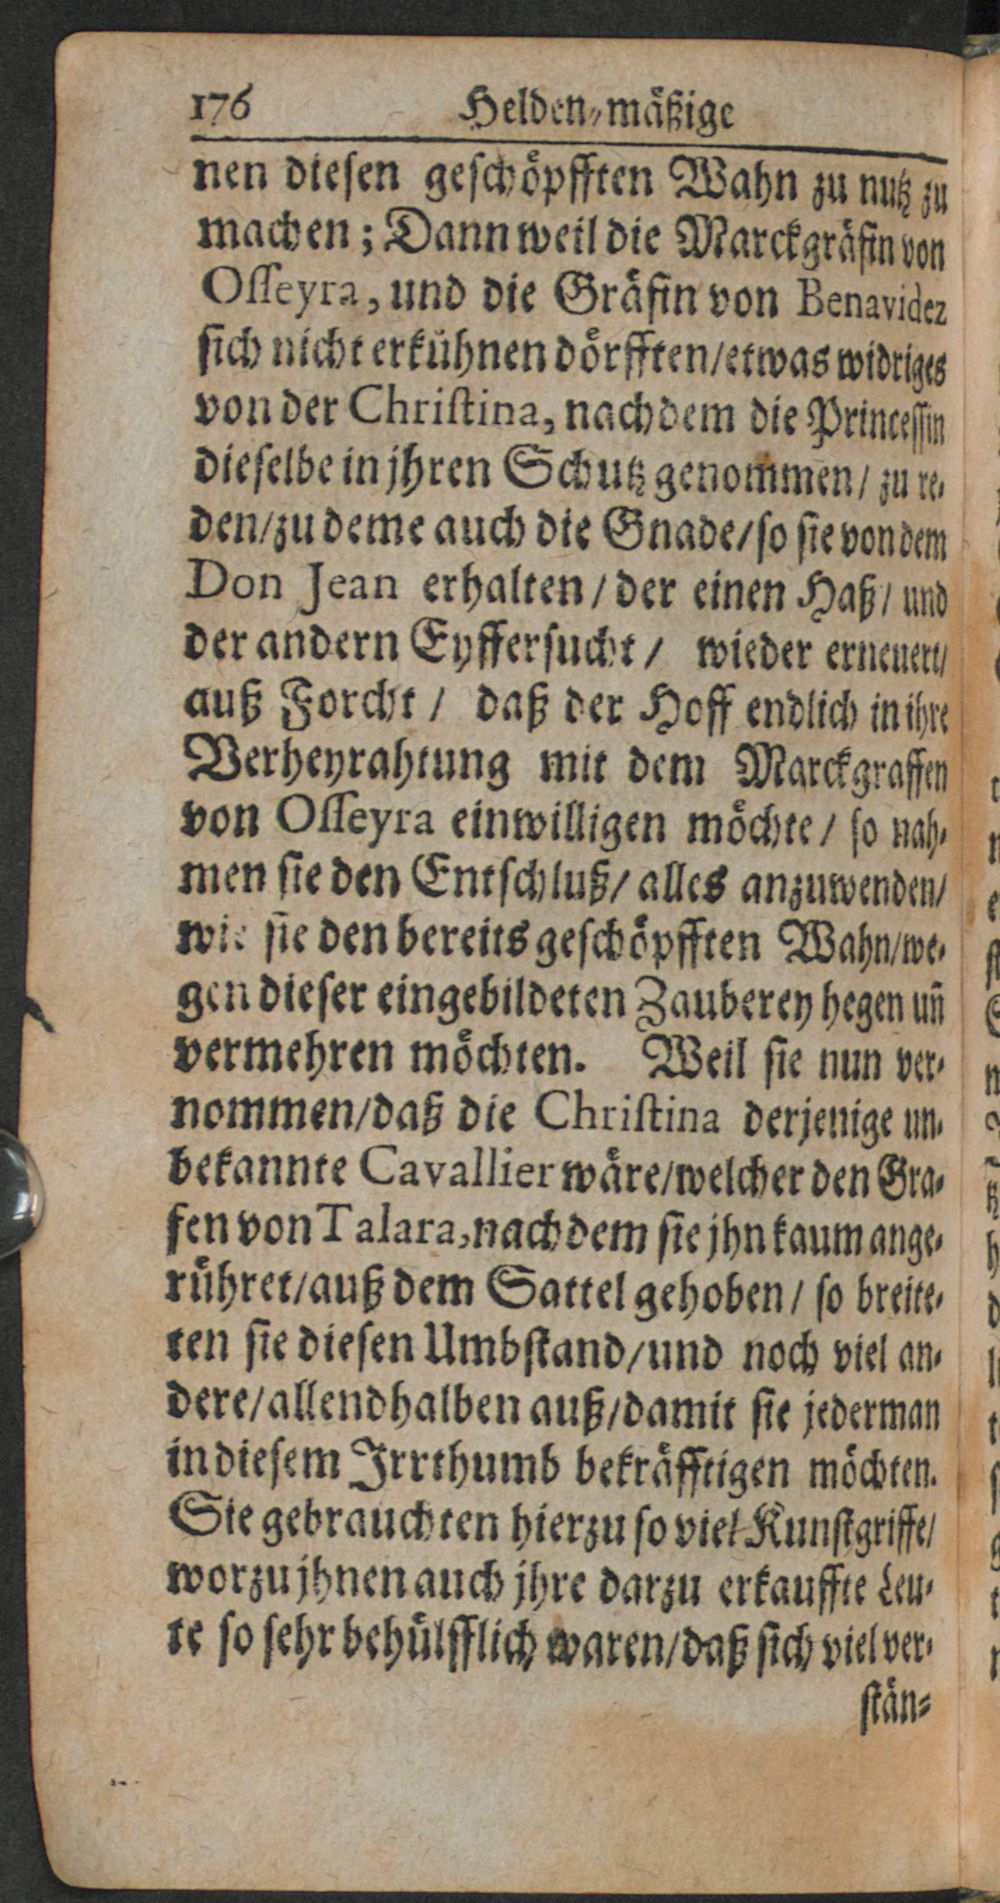 176 Helden-mäßige
nen diesen geschöpfften Wahn zu nutz zu
machen; Dann weil die Marckgräfin von
Osseyra, und die Gräfin von Benavidez
sich nicht erkühnen dörfften/etwas widriges
von der Christina, nachdem die Princessin
dieselbe in jhren Schutz genommen/ zu re-
den/zu deme auch die Gnade/so sie von dem
Don Jean erhalten/der einen Haß/ und
der andern Eyffersucht/ wieder erneuert/
auß Forcht/ daß der Hoff endlich in ihre
Verheyrahtung mit dem Marckgraffen
von Osseyra einwilligen möchte/ so nah-
men sie den Entschluß/ alles anzuwenden/
wie sie den bereits geschöpfften Wahn/we-
gen dieser eingebildeten Zauberey hegen uñ
vermehren möchten. Weil sie nun ver-
nommen/daß die Christina derjenige un-
bekannte Cavallier wäre/welcher den Gra-
fen von Talara, nachdem sie jhn kaum ange-
rühret/auß dem Sattel gehoben/ so breite-
ten sie diesen Umbstand/und noch viel an-
dere/allendhalben auß/damit sie jederman
in diesem Irrthumb bekräfftigen möchten.
Sie gebrauchten hierzu so viel Kunstgriffe/
worzu jhnen auch jhre darzu erkauffte Leu-
te so sehr behülfflich waren/daß sich viel ver-
stän-